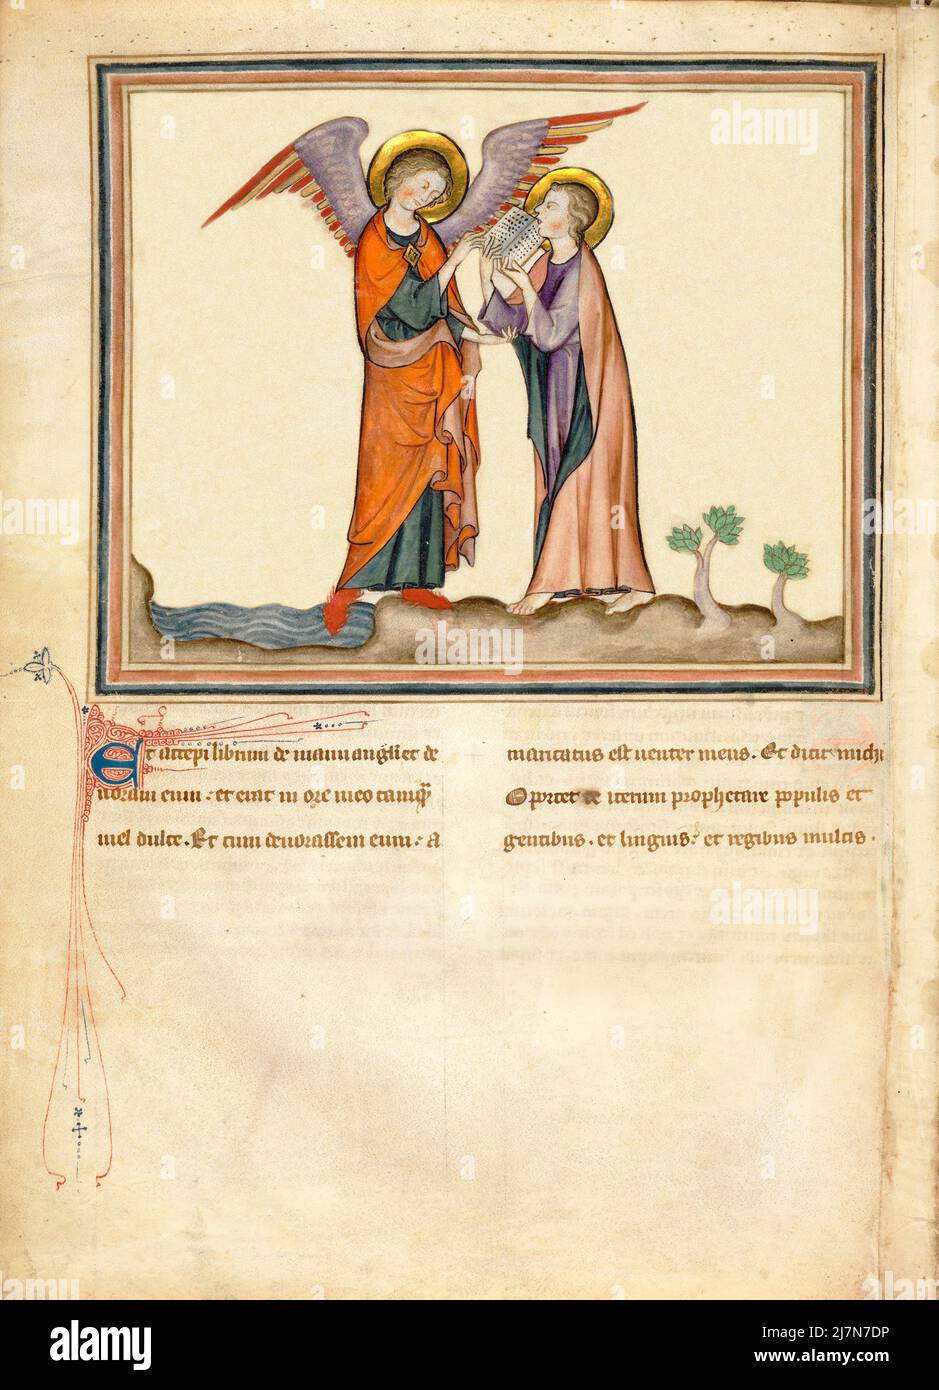 Et accepi librum de manu angli et de
uoraui eum : et erat in ore meo tamq̃
mel dulce . Et cum deuorassem eum : a
maricatus est uenter meus . Et dicit michi
Oportet te iterum prophetare populis et
gentibus . et linguis : et regibus multis .
alamy
alamy
Image ID: 2J7N7DP
www.alamy.com